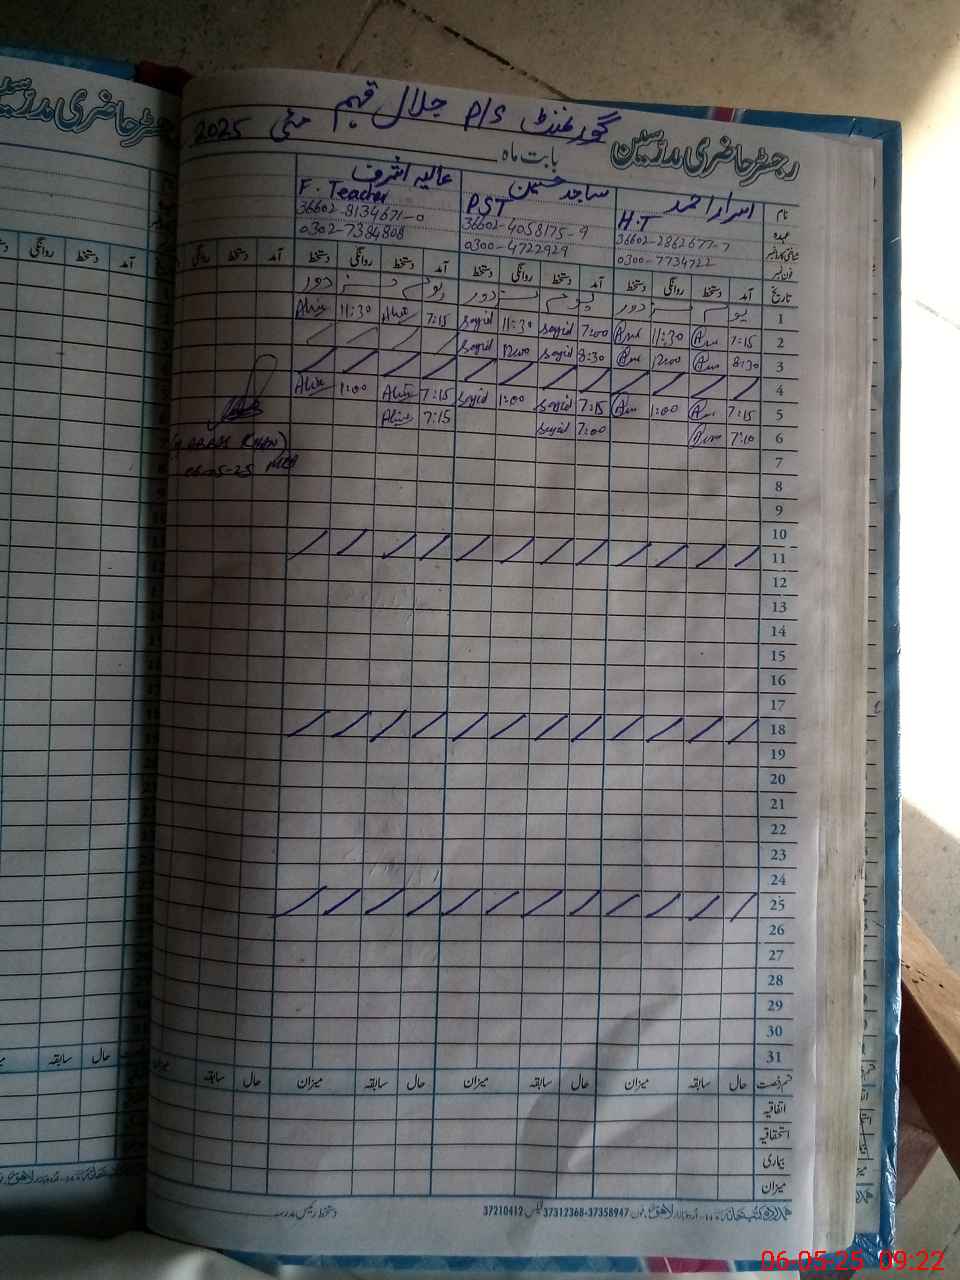 رجسٹر حاضری مدرسین
گورنمنٹ P/S جلال فہیم مئی 2025
بابت ماہ
نام اسرار احمد ساجد حسین عالیہ اشرف
عہدہ H.T PST F. Teacher
شناختی کارڈ نمبر 36602-2862677-7 36602-4058175-9 36602-8134671-0
فون نمبر 0300-7734722 0300-4722929 0302-7384808
تاریخ آمد دستخط روانگی دستخط آمد دستخط روانگی دستخط آمد دستخط روانگی دستخط آمد دستخط روانگی
1 یوم مزدور یوم مزدور یوم مزدور
2 7:15 11:30 7:00 Sajid 11:30 Sajid 7:15 Alia 11:30 Alia
3 8:30 12:00 8:30 Sajid 12:00 Sajid
4
5 7:15 1:00 7:15 Sajid 1:00 Sajid 7:15 Alia 1:00 Alia
6 7:10 7:00 Sajid 7:15 Alia
06-05-25
7
8
9
10
11
12
13
14
15
16
17
18
19
20
21
22
23
24
25
26
27
28
29
30
31
قسم رخصت حال سابقہ میزان حال سابقہ میزان حال سابقہ میزان حال سابقہ
اتفاقیہ
استحقاقیہ
بیماری
میزان
37358947-37312368 فیکس 37210412
دستخط رئیس مدرسہ
رجسٹر حاضری مدرسین
آمد دستخط روانگی دستخط
حال سابقہ
06-05-25 09:22